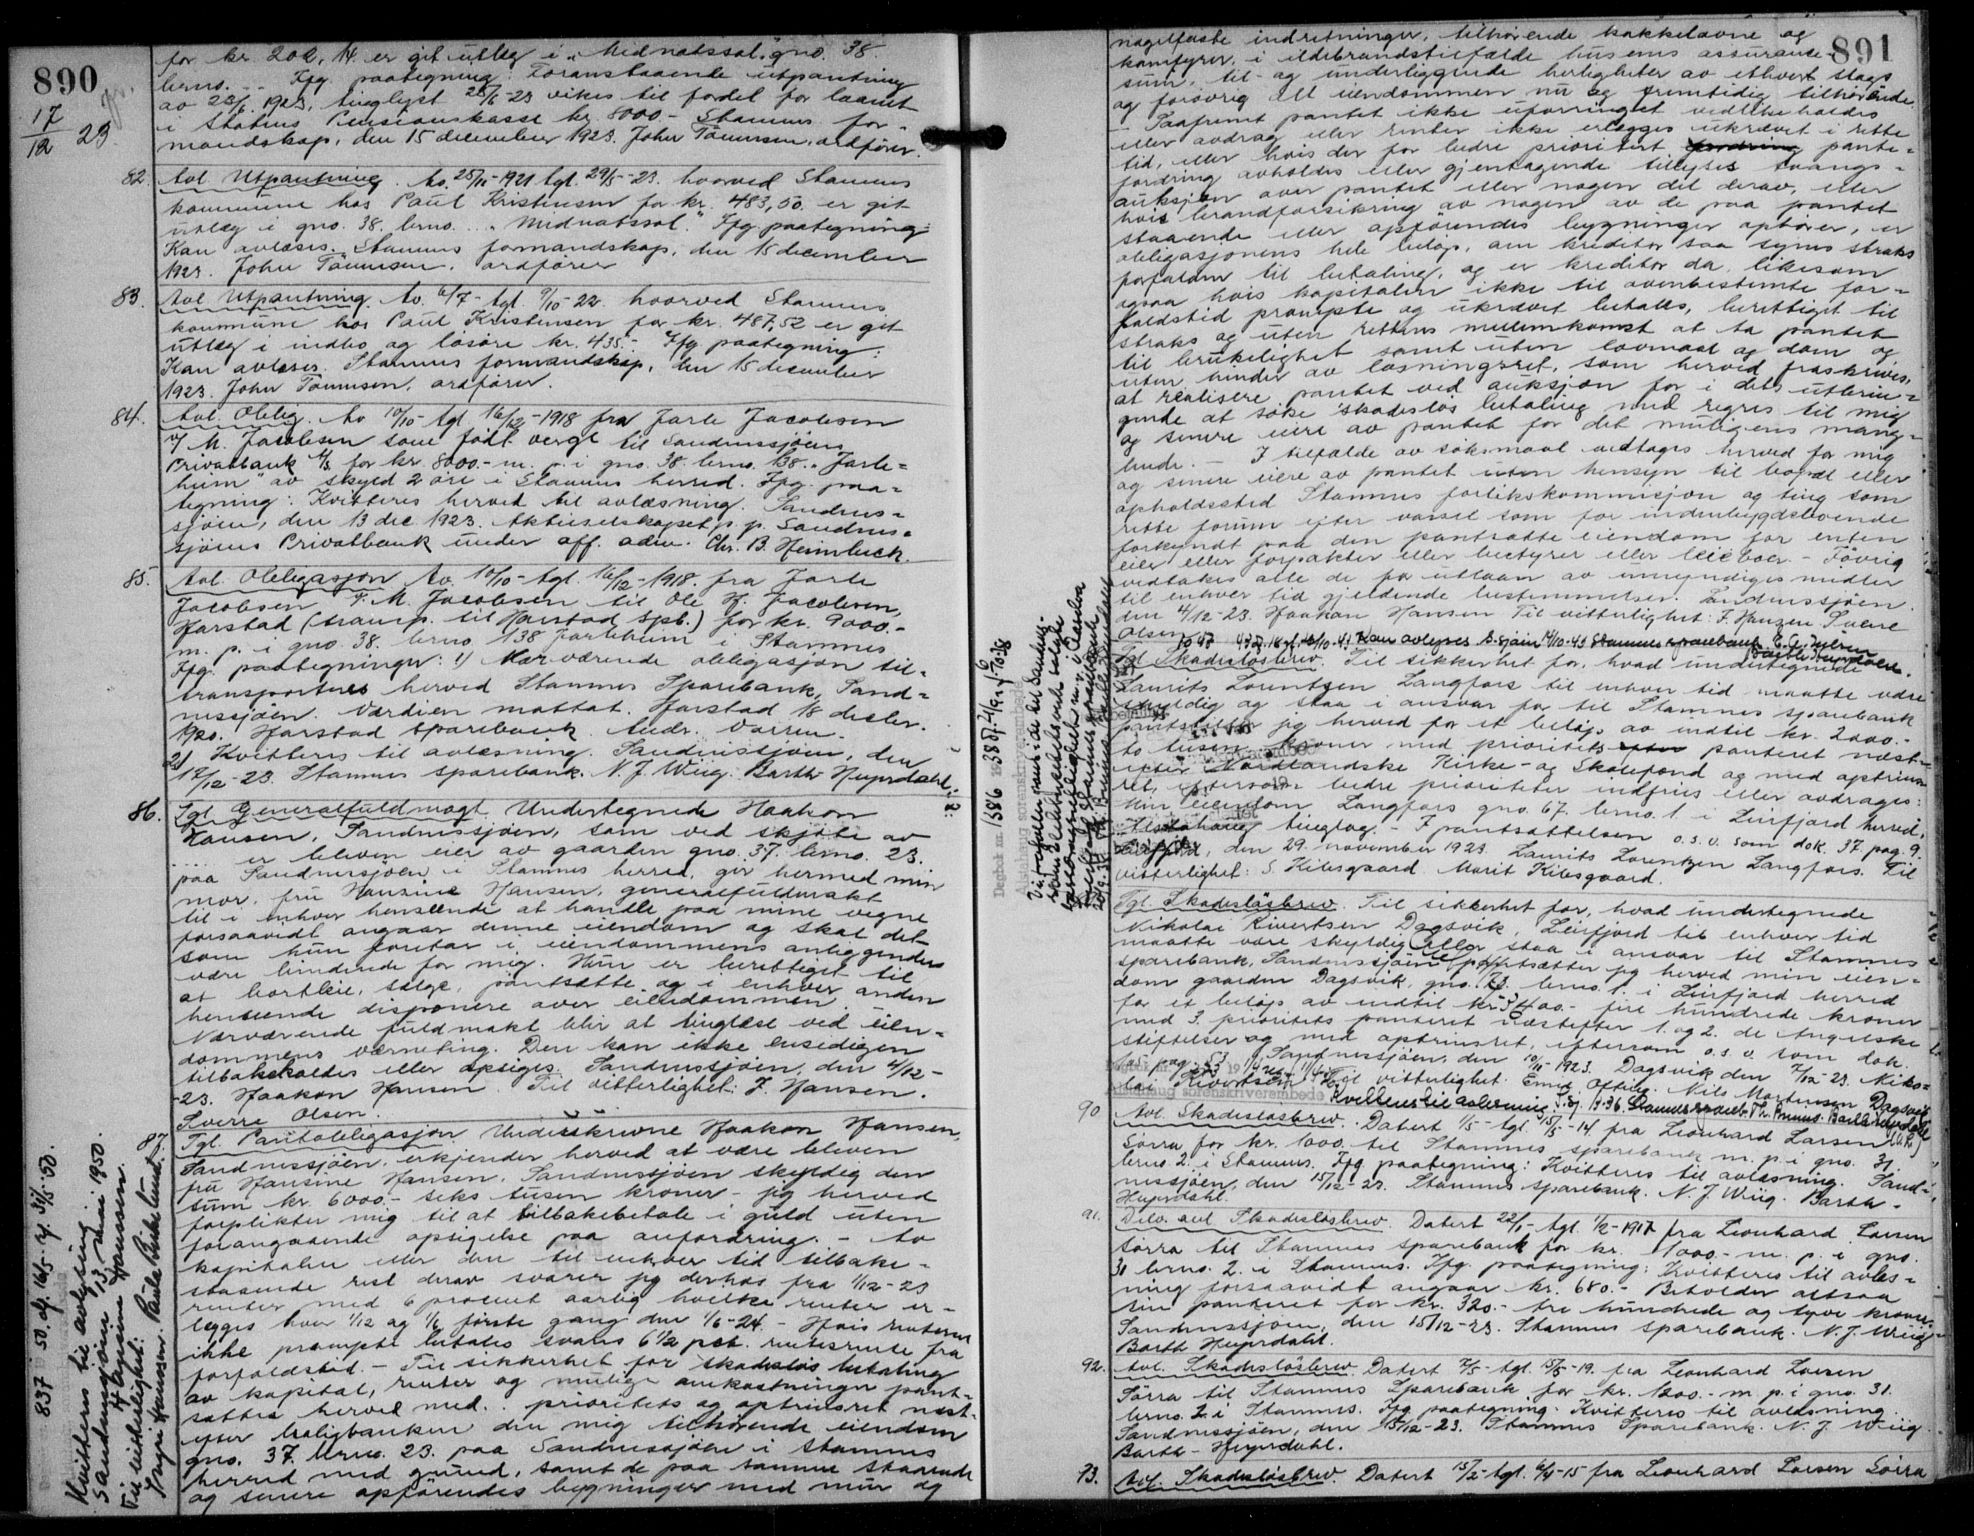 890
17/12 23.
for kr. 202,14 er git utlæg i "Midnatssol" gno. 38
brno. .. Ifg. paategning: Foranstaaende utpantning
av 23/6 1923, tinglyst 25/6-23 vikes til fordel for laanet
i Statens Pensionskasse kr. 8000.- Stamnes for-
mandskap, den 15 december 1923. John Tønnesen, ordfører.
82. Avl. Utpantning. Av. 25/11-1921 tgl. 29/5-23. hvorved Stamnes
kommune hos Paul Kristensen for kr. 483,50. er git
utlæg i gno. 38. brno. .. "Midnatssol". Ifg. paategning:
Kan avlæses. Stamnes formandskap, den 15 december
1923. John Tønnesen, ordfører
83. Avl. Utpantning. Av. 6/7- tgl. 9/10-22. hvorved Stamnes
kommune hos Paul Kristensen for kr. 487,52 er git
utlæg i indbo og løsøre kr. 435.- Ifg. paategning:
Kan avlæses. Stamnes formandskap, den 15 december
1923. John Tønnesen, ordfører.
84. Avl. Oblig. Av 10/10- tgl. 16/12-1918 fra Jarle Jacobsen
v/ M. Jacobsen som født verge til Sandnessjøens
Privatbank A/S for kr. 8000.- m. p. i gno. 38. brno. 138. "Jarle-
heim" av skyld 2 øre i Stamnes herred. Ifg. paa-
tegning: Kvitteres herved til avlæsning. Sandnes-
sjøen, den 13 dec 1923. Aktieselskapet p. p. Sandnes-
sjøens Privatbank under off. adm. Chr. B. Heimbeck.
85. Avl. Obligasjon Av. 10/10- tgl. 16/12-1918. fra Jarle
Jacobsen F. M. Jacobsen til Ole H. Jacobsen,
Harstad (transp. til Harstad spb.) for kr. 9000.-
m. p. i gno. 38. brno. 138 Jarleheim i Stamnes
Ifg. paategninger: 1) Nærværende obligasjon til-
transporteres herved Stamnes Sparebank, Sand-
nessjøen. Værdien mottat. Harstad 18 desbr.
1920. Harstad sparebank Andr. Vorren.
2) Kvitteres til avlæsning. Sandnessjøen, den
12/12-23. Stamnes sparebank. N. J. Wiig. Barth- Heyerdahl.
86. Tgl. Generalfuldmagt Undertegnede Haakon
Hansen, Sandnessjøen, som ved skjøte av
.... er bleven eier av gaarden gno. 37. brno. 23.
paa Sandnessjøen i Stamnes herred, gir hermed min
mor, fru Hansine Hansen, generalfuldmakt
til i enhver henseende at handle paa mine vegne
forsaavidt angaar denne eiendom og skal det
som hun foretar i eiendommens anliggender
være bindende for mig. Hun er berettiget til
at bortleie, sælge, pantsætte og i enhver anden
henseende disponere over eiendommen.
Nærværende fuldmakt blir at tinglæse ved eien-
dommens værneting. Den kan ikke ensidigen
tilbakekaldes eller opsiges. Sandnessjøen, den 4/12-
-23. Haakon Hansen. Til vitterlighet: F. Hansen.
Sverre Olsen.
87. Tgl. Pantobligasjon Underskrevne Haakon Hansen,
Sandnessjøen, erkjender herved at være bleven
fru Hansine Hansen, Sandnessjøen skyldig den
sum kr. 6000.- seks tusen kroner - jeg herved
forplikter mig til at tilbakebetale i guld uten
forangaaende opsigelse paa anfordring. - Av
kapitalen eller den til enhver tid tilbake-
staaende rest derav svarer jeg derhos fra 1/12-23
renter med 6 procent aarlig hvilke renter er-
lægges hver 1/12 og 1/6 første gang den 1/6-24. - Hvis renterne
ikke prompte betales svares 6 1/2 pct. rentesrente fra
forfaldstid. - Til sikkerhet for skadesløs betaling
av kapital, renter og mulige omkostninger pant-
sættes herved med . prioritets og optrinsret næst-
efter boligbanken den mig tilhørende eiendom
gno. 37. brno. 23. paa Sandnessjøen i Stamnes
herred med grund, samt de paa samme staaende
og senere opførendes bygninger med mur og
837 50 dg. 16/5 - 31/5. 50.
Kvitteres til avlysning.
Sandnessjøen 13. mai 1950.
Hansine Hansen.
Til vitterlighet:
Inga Hansson. Paula Birkelund.
891
nagelfaste indretninger, tilhørende kakkelovne og
komfyrer, i ildebrandstilfælde husenes assurance-
sum, til- og underliggende herligheter av ethvert slags
og forøvrig alt eiendommen nu og fremtidig tilhørende.
- Saafremt pantet ikke uforringet vedlikeholdes
eller avdrag eller renter ikke erlægges ukrævet i rette
tid, eller hvis der for bedre prioritert pante-
fordring avholdes eller gjentagende tillyses tvangs-
auksjon over pantet eller nogen del derav, eller
hvis brandforsikring av nogen av de paa pantet
staaende eller opførendes bygninger ophører, er
obligasjonens hele beløp, om kreditor saa synes straks
forfalden til betaling, og er kreditor da, likesom
ogsaa hvis kapitalen ikke til ovenbestemte for-
faldstid prompte og ukrævet betales, berettiget til
straks og uten rettens mellemkomst at ta pantet
til brukelighet samt uten lovmaal og dom og
uten hinder av løsningsret, som herved fraskrives,
at realisere pantet ved auksjon for i dets utbrin-
gende at søke skadesløs betaling med regres til mig
og senere eiere av pantet for det muligens mang-
lende. - I tilfælde av søksmaal vedtages herved for mig
og senere eiere av pantet uten hensyn til bopæl eller
opholdssted Stamnes forlikskommisjon og ting som
rette forum efter varsel som for indenbygdsboende
forkyndt paa den pantsatte eiendom for enten
eier eller forpakter eller bestyrer eller leieboer. - Iøvrig
vedtakes alle de for utlaan av umyndiges midler
til enhver tid gjeldende bestemmelser. Sandnessjøen
den 4/12-23. Haakon Hansen Til vitterlighet: F. Hansen Sverre
Olsen
Kan avlyses S.sjøen 14/10-43 Stamnes sparebank
Tgl. Skadesløsbrev. Til sikkerhet for, hvad undertegnede
Laurits Lorentzen Langfors til enhver tid maatte være
skyldig og staa i ansvar for til Stamnes sparebank
pantsætter jeg herved for et beløp av indtil kr. 2000.-
to tusen kroner med prioritets panteret næst-
efter Nordlandske Kirke- og Skolefond og med optrins-
ret, eftersom bedre prioriteter indfries eller avdrages:
Min eiendom Langfors gno. 67. brno. 1. i Leirfjord herred,
Alstahaug tinglag. - I pantsættelsen o.s.v. som dok. 37. pag. 9.
Leirfjord, den 29. november 1923. Laurits Lorentzen Langfors. Til
vitterlighet: S. Kibsgaard. Marit Kibsgaard.
Tgl. Skadesløsbrev. Til sikkerhet for, hvad undertegnede
Nikolai Sivertsen Dagsvik, Leirfjord til enhver tid
maatte være skyldig eller staa i ansvar til Stamnes
sparebank, Sandnessjøen pantsætter jeg herved min eien-
dom gaarden Dagsvik, gno. brno. 1. i Leirfjord herred
for et beløp av indtil kr. 400.- fire hundrede kroner
med 3. prioritets panteret næstefter 1. og 2. de Angellske
stiftelser og med optrinsret, eftersom o.s.v. som dok.
pag. 53. Sandnessjøen, den 10/11 1923. Dagsvik den 7/12-23. Niko-
lai Sivertsen Til vitterlighet: Nils Mortensen Dagsvik
Kvitteres til avlæsning
90 Avl. Skadesløsbrev. Datert 1/5- tgl. 15/5-14. fra Leonhard Larsen
Sørra for kr. 1000. til Stamnes sparebank m. p. i gno. 31.
brno. 2. i Stamnes. Ifg. paategning: Kvitteres til avlæsning. Sand-
nessjøen, den 15/12-23. Stamnes sparebank. N. J. Wiig. Barth-
Heyerdahl.
91. Delv. avl. Skadesløsbrev. Datert 22/1- tgl. 1/2-1917 fra Leonhard Larsen
Sørra til Stamnes sparebank for kr. 1000.- m. p. i gno.
31 brno. 2. i Stamnes. Ifg. paategning: Kvitteres til avlæs-
ning forsaavidt angaar kr. 680.- Beholder altsaa
sin panteret for kr. 320.- tre hundrede og tyve kroner.
Sandnessjøen, den 15/12-23. Stamnes sparebank. N. J. Wiig
Barth Heyerdahl.
92. Avl. Skadesløsbrev. Datert 7/5- tgl. 15/5-19. fra Leonhard Larsen
Sørra til Stamnes Sparebank for kr. 1200.- m. p. i gno. 31.
brno. 2. i Stamnes. Ifg. paategning. Kvitteres til avlæsning.
Sandnessjøen, den 15/12-23. Stamnes Sparebank. N. J. Wiig.
Barth- Heyerdahl.
93. Avl. Skadesløsbrev. Datert 15/2- tgl. 6/4-15 fra Leonhard Larsen Sørra